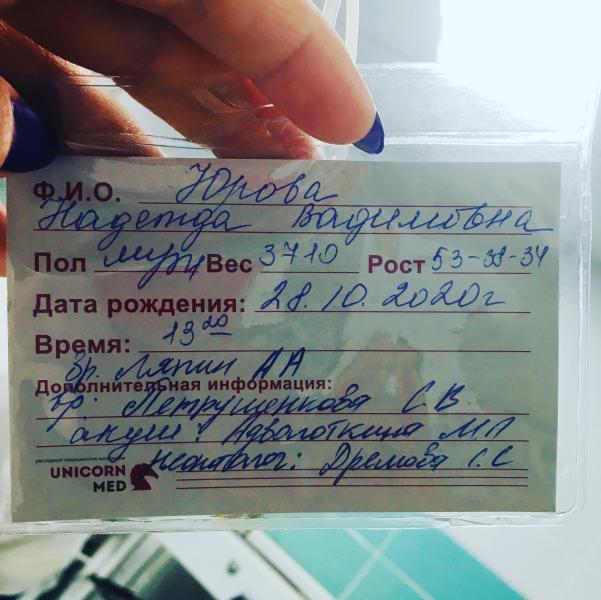 Ф.И.О. Юрова
Надежда Вадимовна
Пол муж Вес 3710 Рост 53-38-34
Дата рождения: 28.10.2020г
Время: 13 20
Вр. Ляпин АА
Дополнительная информация:
Вр. Петрушенкова С.В
акуш: М.П
неонатолог: Дремова С.С
расходные медицинские материалы
UNICORN
MED